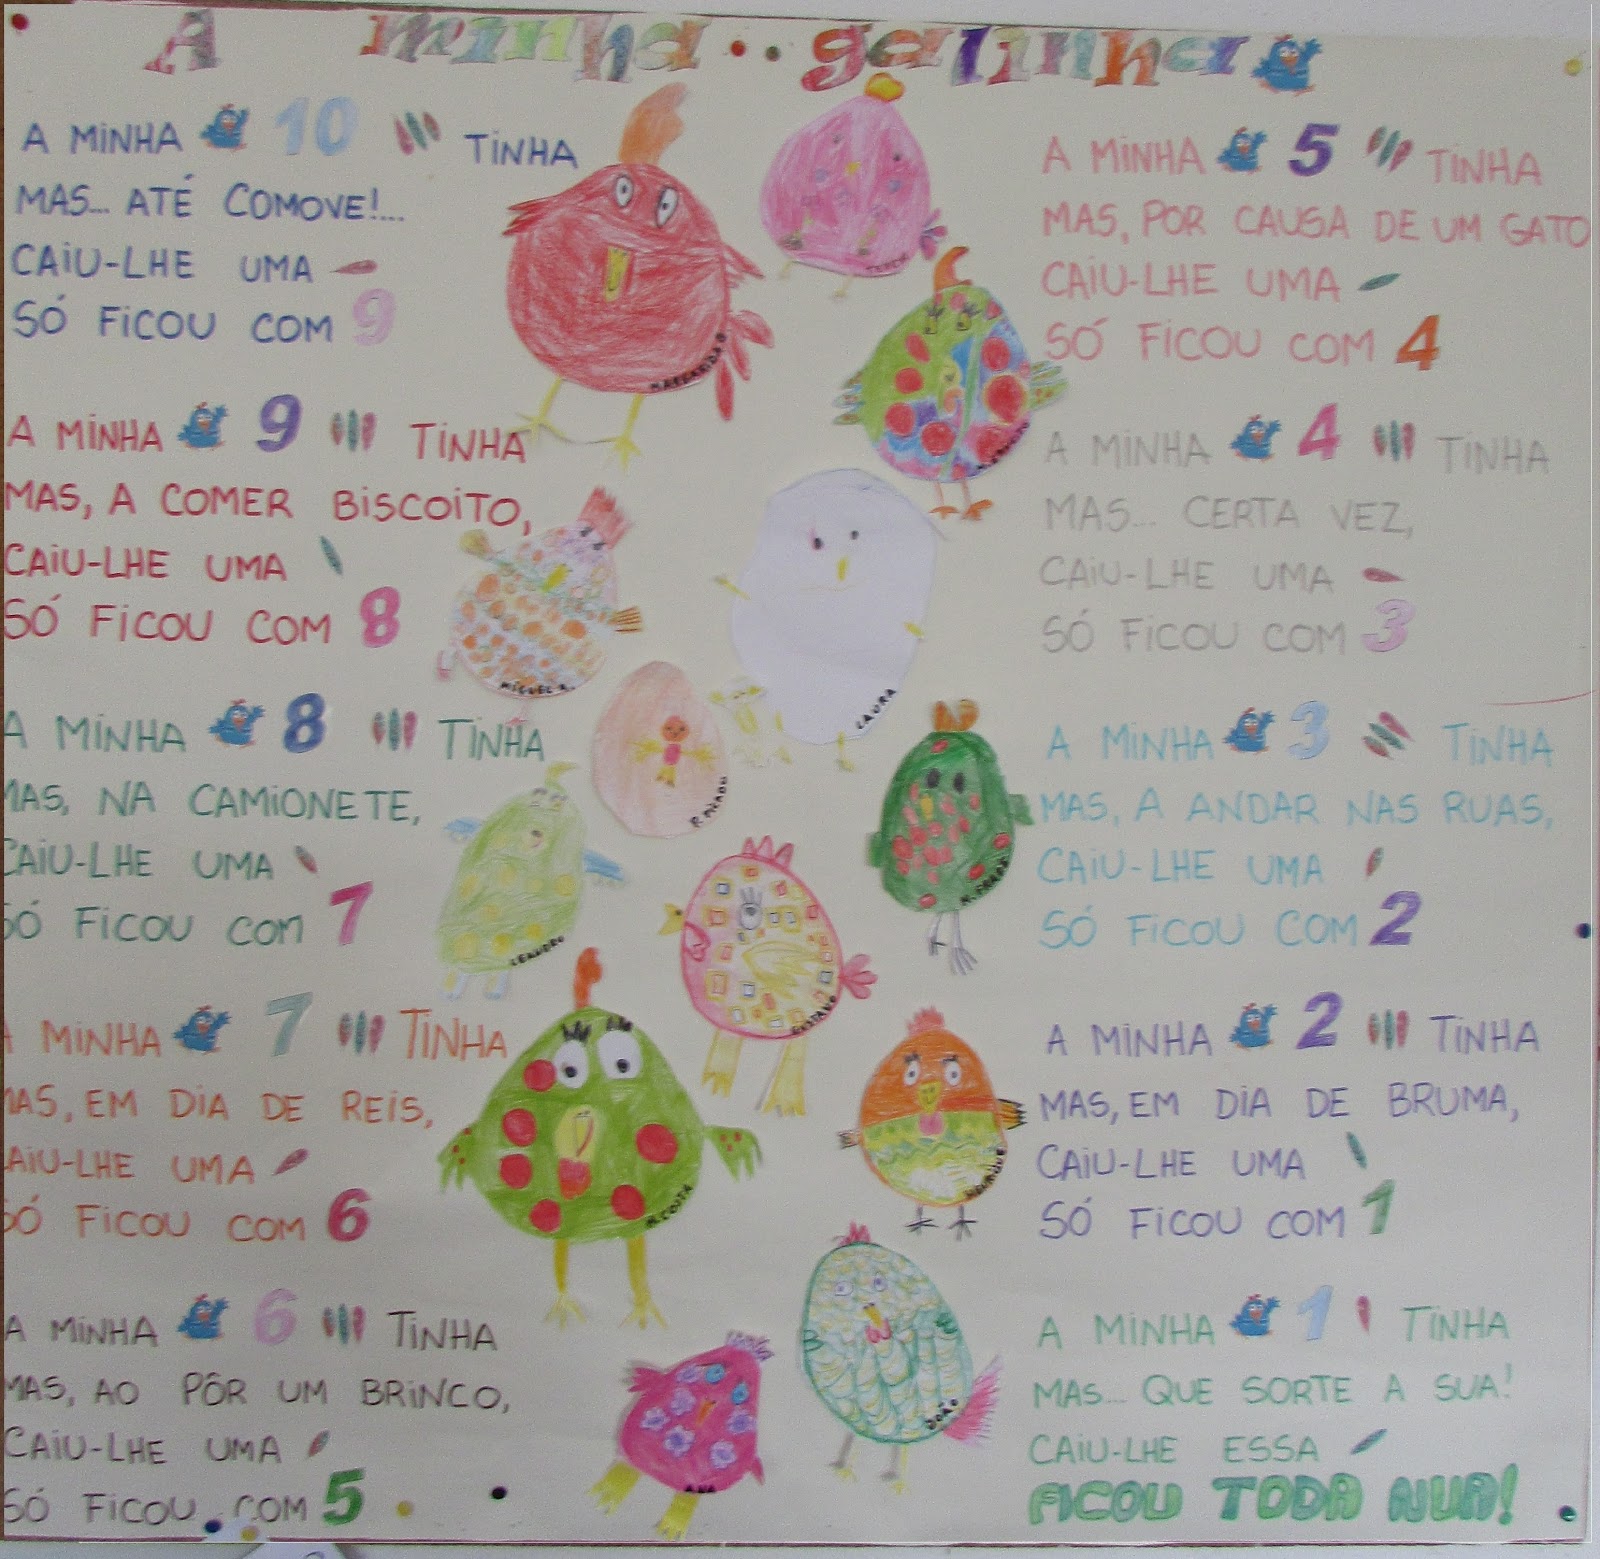 A minha galinha
A MINHA 10 TINHA
MAS... ATÉ COMOVE!...
CAIU-LHE UMA
SÓ FICOU COM 9
A MINHA 9 TINHA
MAS, A COMER BISCOITO,
CAIU-LHE UMA
SÓ FICOU COM 8
A MINHA 8 TINHA
MAS, NA CAMIONETE,
CAIU-LHE UMA
SÓ FICOU COM 7
A MINHA 7 TINHA
MAS, EM DIA DE REIS,
CAIU-LHE UMA
SÓ FICOU COM 6
A MINHA 6 TINHA
MAS, AO PÔR UM BRINCO,
CAIU-LHE UMA
SÓ FICOU COM 5
MARGARIDA O
MIGUEL R.
LAURA
LEANDRO
GUSTAVO
M. COSTA
HENRIQUE
JOÃO
ANA
A MINHA 5 TINHA
MAS, POR CAUSA DE UM GATO
CAIU-LHE UMA
SÓ FICOU COM 4
A MINHA 4 TINHA
MAS... CERTA VEZ,
CAIU-LHE UMA
SÓ FICOU COM 3
A MINHA 3 TINHA
MAS, A ANDAR NAS RUAS,
CAIU-LHE UMA
SÓ FICOU COM 2
A MINHA 2 TINHA
MAS, EM DIA DE BRUMA,
CAIU-LHE UMA
SÓ FICOU COM 1
A MINHA 1 TINHA
MAS... QUE SORTE A SUA!
CAIU-LHE ESSA
FICOU TODA NUA!